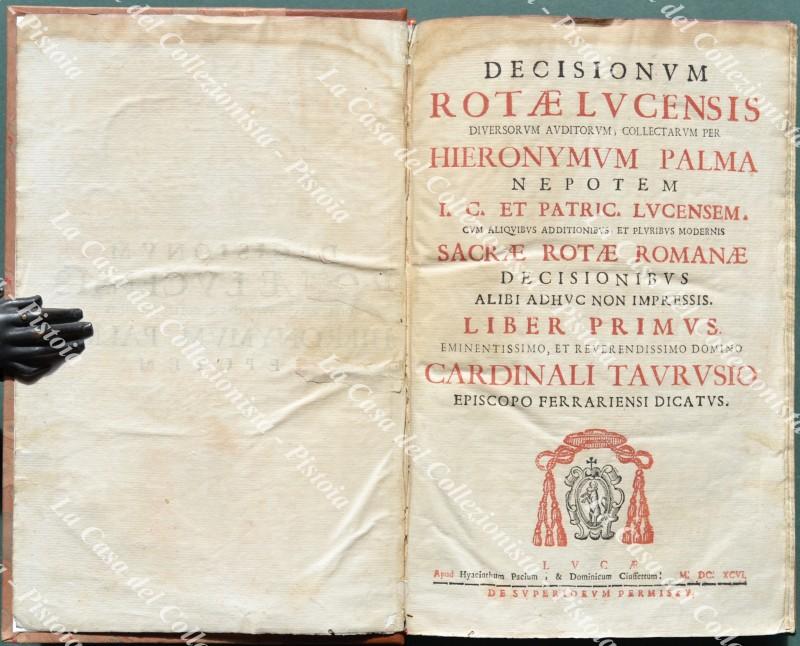 DECISIONVM
ROTÆ LVCENSIS
DIVERSORVM AVDITORVM, COLLECTARVM PER
HIERONYMVM PALMA
NEPOTEM
I. C. ET PATRIC. LVCENSEM.
CVM ALIQVIBVS ADDITIONIBVS, ET PLVRIBVS MODERNIS
SACRÆ ROTÆ ROMANÆ
DECISIONIBVS
ALIBI ADHVC NON IMPRESSIS.
LIBER PRIMVS.
EMINENTISSIMO, ET REVERENDISSIMO DOMINO
CARDINALI TAVRVSIO
EPISCOPO FERRARIENSI DICATVS.
LVCÆ
Apud Hyacinthum Pacium, & Dominicum Ciuffettum: M. DC. XCVI.
DE SVPERIORVM PERMISSV.
La Casa del Collezionista - Pistoia